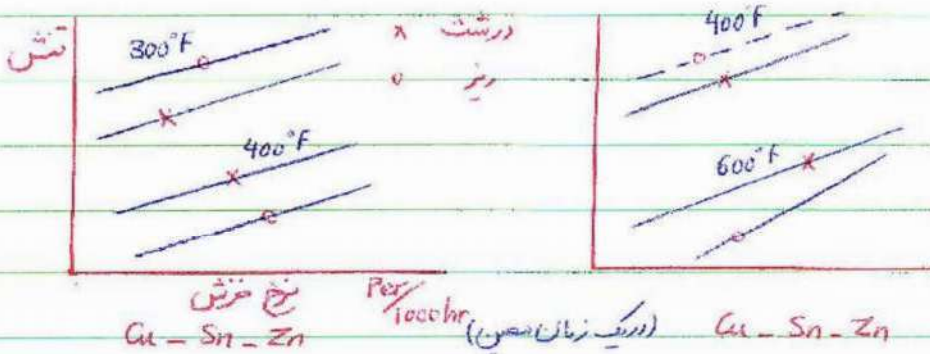 تنش
300°F
× درشت
○ ریز
400°F
400°F
600°F
نرخ خزش Per/1000hr (در یک زمان معین)
Cu - Sn - Zn
Cu - Sn - Zn